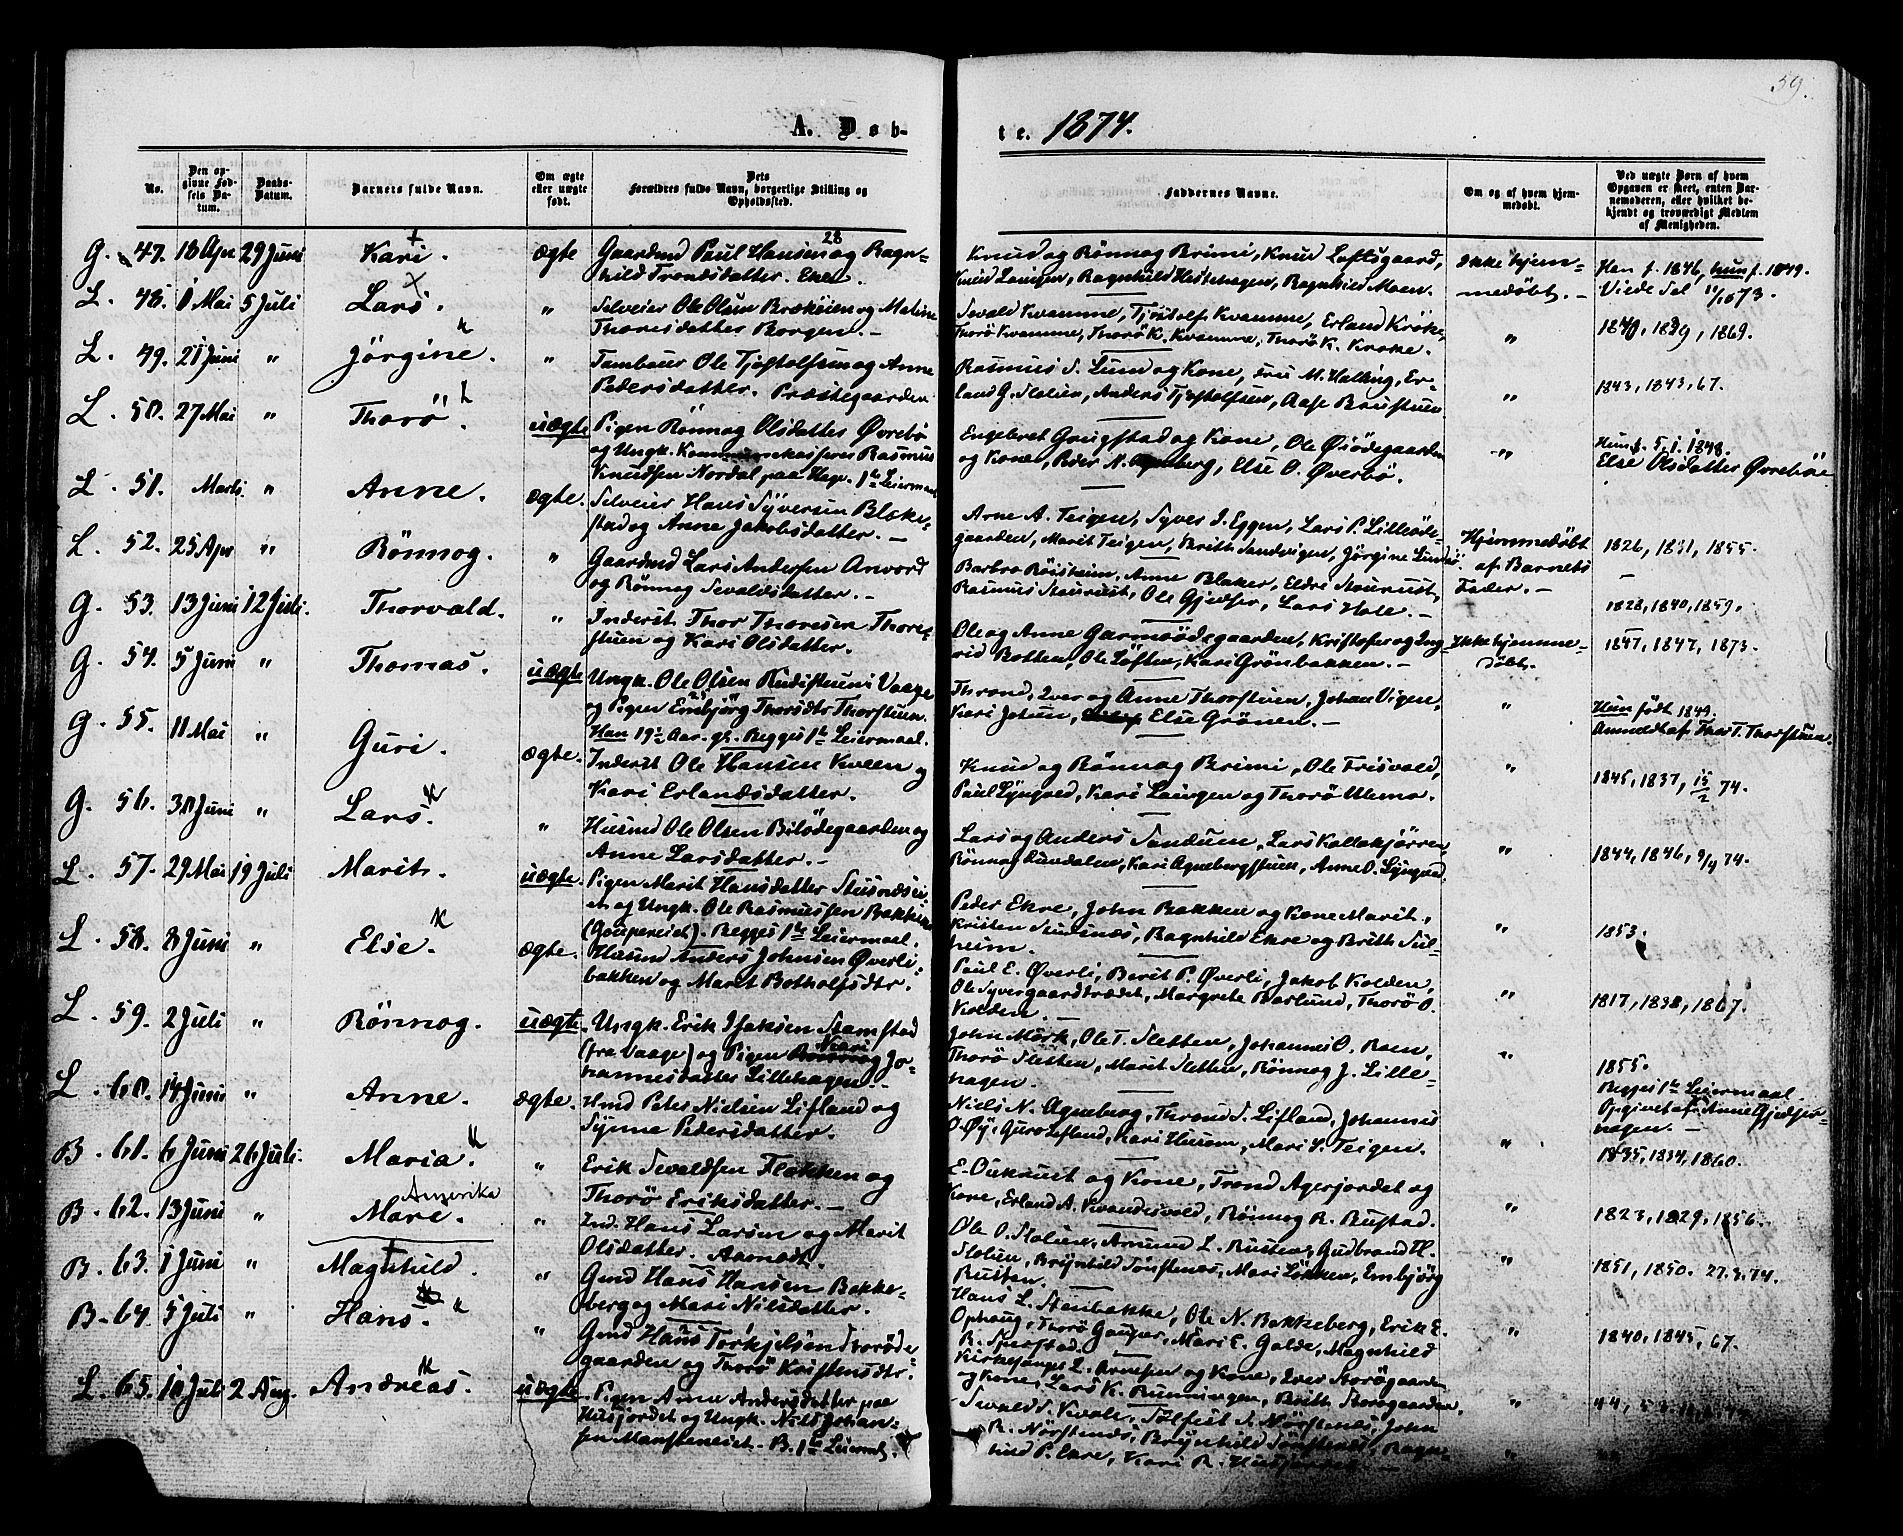 59.
A. Døb-
te. 1874.
No.
Den op-
givne Fød-
sels Da-
tum.
Daabs-
Datum.
Barnets fulde Navn.
Om ægte
eller uægte
født.
Dets
Forældres fulde Navn, borgerlige Stilling og
Opholdssted.
Faddernes Navne.
Om og af hvem hjem-
medøbt.
Ved uægte Børn af hvem
Opgaven er skeet, enten Bar-
nemoderen, eller hvilket be-
kjendt og troværdigt Medlem
af Menigheden.
G. 47. 18 Apr 29 Juni Kari. ægte Gaardmd Paul Hansen 28 og Ragn-
hild Trondsdatter.
Knud og Rönnog Brimi, Knud Loftsgaard,
Knud Laugen, Ragnhild Hestehagen, Ragnhild Moen.
Ikke hjem-
medöbt. -
Han f. 1846, hun f. 1849.
Viede Sel 11/10 73.
L. 48. 1 Mai 5 Juli Lars. " Selveier Ole Olsen Brækøien og Maline
Thoresdatter Borgen. -
Sevald Kvamme, Tjöstolf Kvamme, Erland Kröke,
Thorö Kvamme, Thorö K. Kvamme, Thorö K. Kroke.
"
1840, 1839, 1869.
L. 49. 21 Juni " Jörgine. " Tambour Ole Tjöstolfsen og Anne
Pedersdatter. Præstegaarden
Rasmus S. Lund og Kone, Fru M. Halling, Er-
land G. Stolien, Anders Tjöstolfsen, Aase Brustuen
"
1843, 1843, 67.
L. 50. 27 Mai " Thorö. uægte Pigen Rönnog Olsdatter Øvrebö
og Ungk. Kommunekasserer Rasmus
Knudsen Nordal paa Hage. 1ste Leiermaal
Engebret Graugstad og Kone, Ole Øiödegaarden
og Kone, Peder N. Agneberg, Else O. Øverbö.
"
Hun f. 5.1.1848.
Else Olsdatter Øvreböe
L. 51. Marts " Anne. ægte. Selveier Hans Syversen Blake-
stad og Anne Jakobsdatter. -
Arne A. Teigen, Syver J. Eggen, Lars P. Lilleöde-
gaarden, Marit Teigen, Brith Sandvigen, Jörgine Lund
Hjemmedöbt
af Barnets
Fader. -
1826, 1831, 1855.
L. 52. 25 Apr " Rönnog. " Gaardmd Lars Andersen Anvord
og Rönnog Sevaldsdatter. -
Barbro Röisheim, Anne Blaker, Eldri Staurust,
Rasmus Staurust, Ole Gjedser, Lars Hole. -
1828, 1840, 1859.
G. 53. 13 Juni 12 Juli. Thorvald. " Inderst Thor Thoresen Thore-
stuen og Kari Olsdatter.
Ole og Anne Garmoödegaarden, Kristofer og Ing-
rid Botten, Ole Löften, Kari Grönbakken. -
Ikke hjemme-
döbt.
1847, 1847, 1873.
G. 54. 5 Juni " Thomas. uægte Ungk. Ole Olsen Rudistuen i Vaage
og Pigen Embjörg Thorsdtr Thorstuen.
Han 19 Aar. gl. Begges 1ste Leiermaal.
Thrond, Iver og Anne Thorstuen, Johan Vigen,
Kari Jotun, Else Grönen. -
"
Hun födt 1849.
Anmeldt af Thor T. Thorstuen.
G. 55. 11 Mai " Guri. ægte. Inderst Ole Hansen Kveen og
Kari Erlandsdatter.
Knud og Rönnog Brimi, Ole Frisvold,
Paul Lyngved, Kari Laugen og Thorö Ulemo.
"
1845, 1837, 15/2 74.
G. 56. 30 Juni " Lars. " Husmd Ole Olsen Bilödegaarden og
Anne Larsdatter. -
Lars og Anders Sandum, Lars Kollekjörren,
Rönnog Lundalen, Kari Agnebergstuen, Anne O. Lyngved.
"
1844, 1846, 9/4 74.
L. 57. 29 Mai 19 Juli Marit. uægte. Pigen Marit Hansdatter Stusnæsei-
et og Ungk. Ole Rasmussen Bakken
(Goupereiet). Begges 1ste Leiermaal.
Peder Ekre, John Bakken og Kone Marit,
Kristen Stusnæs, Ragnhild Ekre og Brith Sul-
heim.
"
1853.
L. 58. 8 Juni " Else. ægte. Husmd Anders Johnsen Øverli-
bakken og Marit Botholfsdtr.
Paul E. Øverli, Berit P. Øverli, Jakob Kolden,
Ole Syvergaardtrædet, Margrete Barlund, Thorö O.
Kolden. -
"
1817, 1838, 1867.
L. 59. 2 Juli " Rönnog. uægte. Ungk. Erik Isaksen Stamstad
(fra Vaage) og Pigen Kari Jo-
hannesdatter Lillehagen. -
John Mork, Ole T. Sletten, Johannes O. Roen,
Thorö Sletten, Marit Sletten, Rönnog J. Lille-
hagen.
"
1855.
Begges 1ste Leiermaal.
Opgivet af Anne Gjedser-
hagen. -
L. 60. 14 Juni " Anne. ægte. Hmd Peter Nielsen Lifland og
Synne Pedersdatter.
Niels N. Agneberg, Thrond S. Lifland, Johannes
O. Øy, Guro Lifland, Kari Husom, Mari S. Teigen.
"
1835, 1834, 1860.
B. 61. 6 Juni 26 Juli. Maria. " Erik Sevaldsen Flækken og
Thorö Eriksdatter. -
E. Oukrust og Kone, Trond Agerjordet og
Kone, Erland A. Kvandesvold, Rönnog R. Rustad.
"
1823, 1829, 1856.
B. 62. 13 Juni " Amerika
Mari. " Ind. Hans Larsen og Marit
Olsdatter. Aamodt.
Ole O. Stolien, Amund L. Rusten, Gudbrand H.
Stolien, Brynhild Tonstenes, Mari Lökken, Embjörg
Rusten.
"
1851, 1850. 27.3.74.
B. 63. 1 Juni " Magnhild. " Gmd Hans Hansen Bakke-
berg og Mari Nilsdatter.
Hans L. Stenbakke, Ole N. Bakkeberg, Erik E.
Ophaug, Thorö Gauper, Mari E. Golde, Magnhild
R. Sperstad.
"
1840, 1845, 67.
B. 64 5 Juli " Hans. " Gmd Hans Torkjelsen Storöde-
gaarden og Thorö Kristensdtr.
Kirkesanger L. Arnesen og Kone, Iver Storögaarden
og Kone, Lars K. Runningen, Brith Storogaarden.
"
L. 65. 10 Juli 2 Aug. Andreas. uægte. Pigen Anne Andersdatter paa
Husjordet og Ungk. Nils Johan-
sen Marsteneiet. B. 1ste Leierm.
Sevald S. Kvale, Sölfest S. Norstenes, John
R. Nörstenes, Brynhild Tonstenes, Ragn-
hild P. Ekre, Kari R. Husjordet. -
"